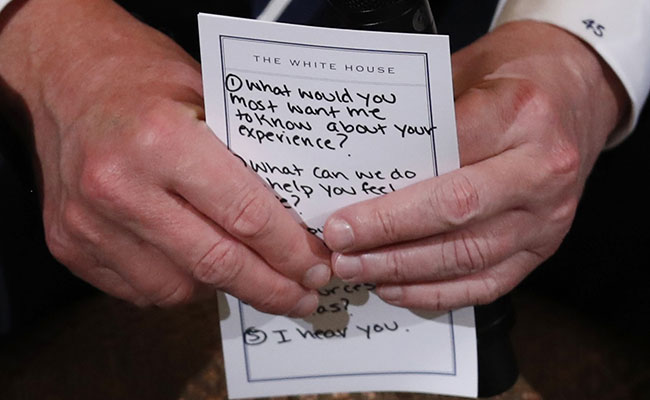 45
THE WHITE HOUSE
① What would you
most want me
to know about your
experience?
What can we do
help you feel
?
?
⑤ I hear you.